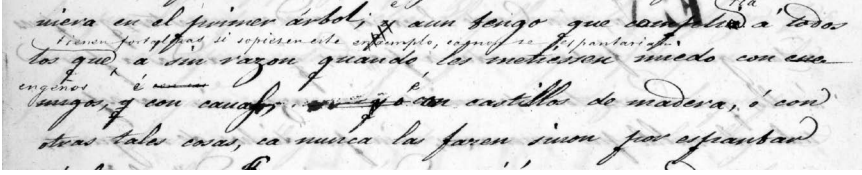 niera en el primer árbol; é aun tengo que cumplia á todos
tienen fortalezas si sopiesen este enxemplo, ca non se espantarian
los que á sin razon quando les metiessen miedo con
engeños é
con cavas, ó con castillos de madera, ó con
otras tales cosas, ca nunca las farien sinon por espantar